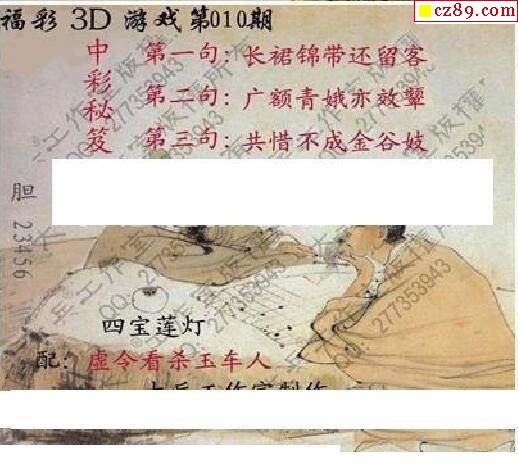 cz89.com
福彩3D游戏第010期
中彩秘笈
第一句:长裙锦带还留客
第二句:广额青娥亦效颦
第三句:共惜不成金谷妓
胆 23456
四宝莲灯
配:虚令看杀玉车人
277353943